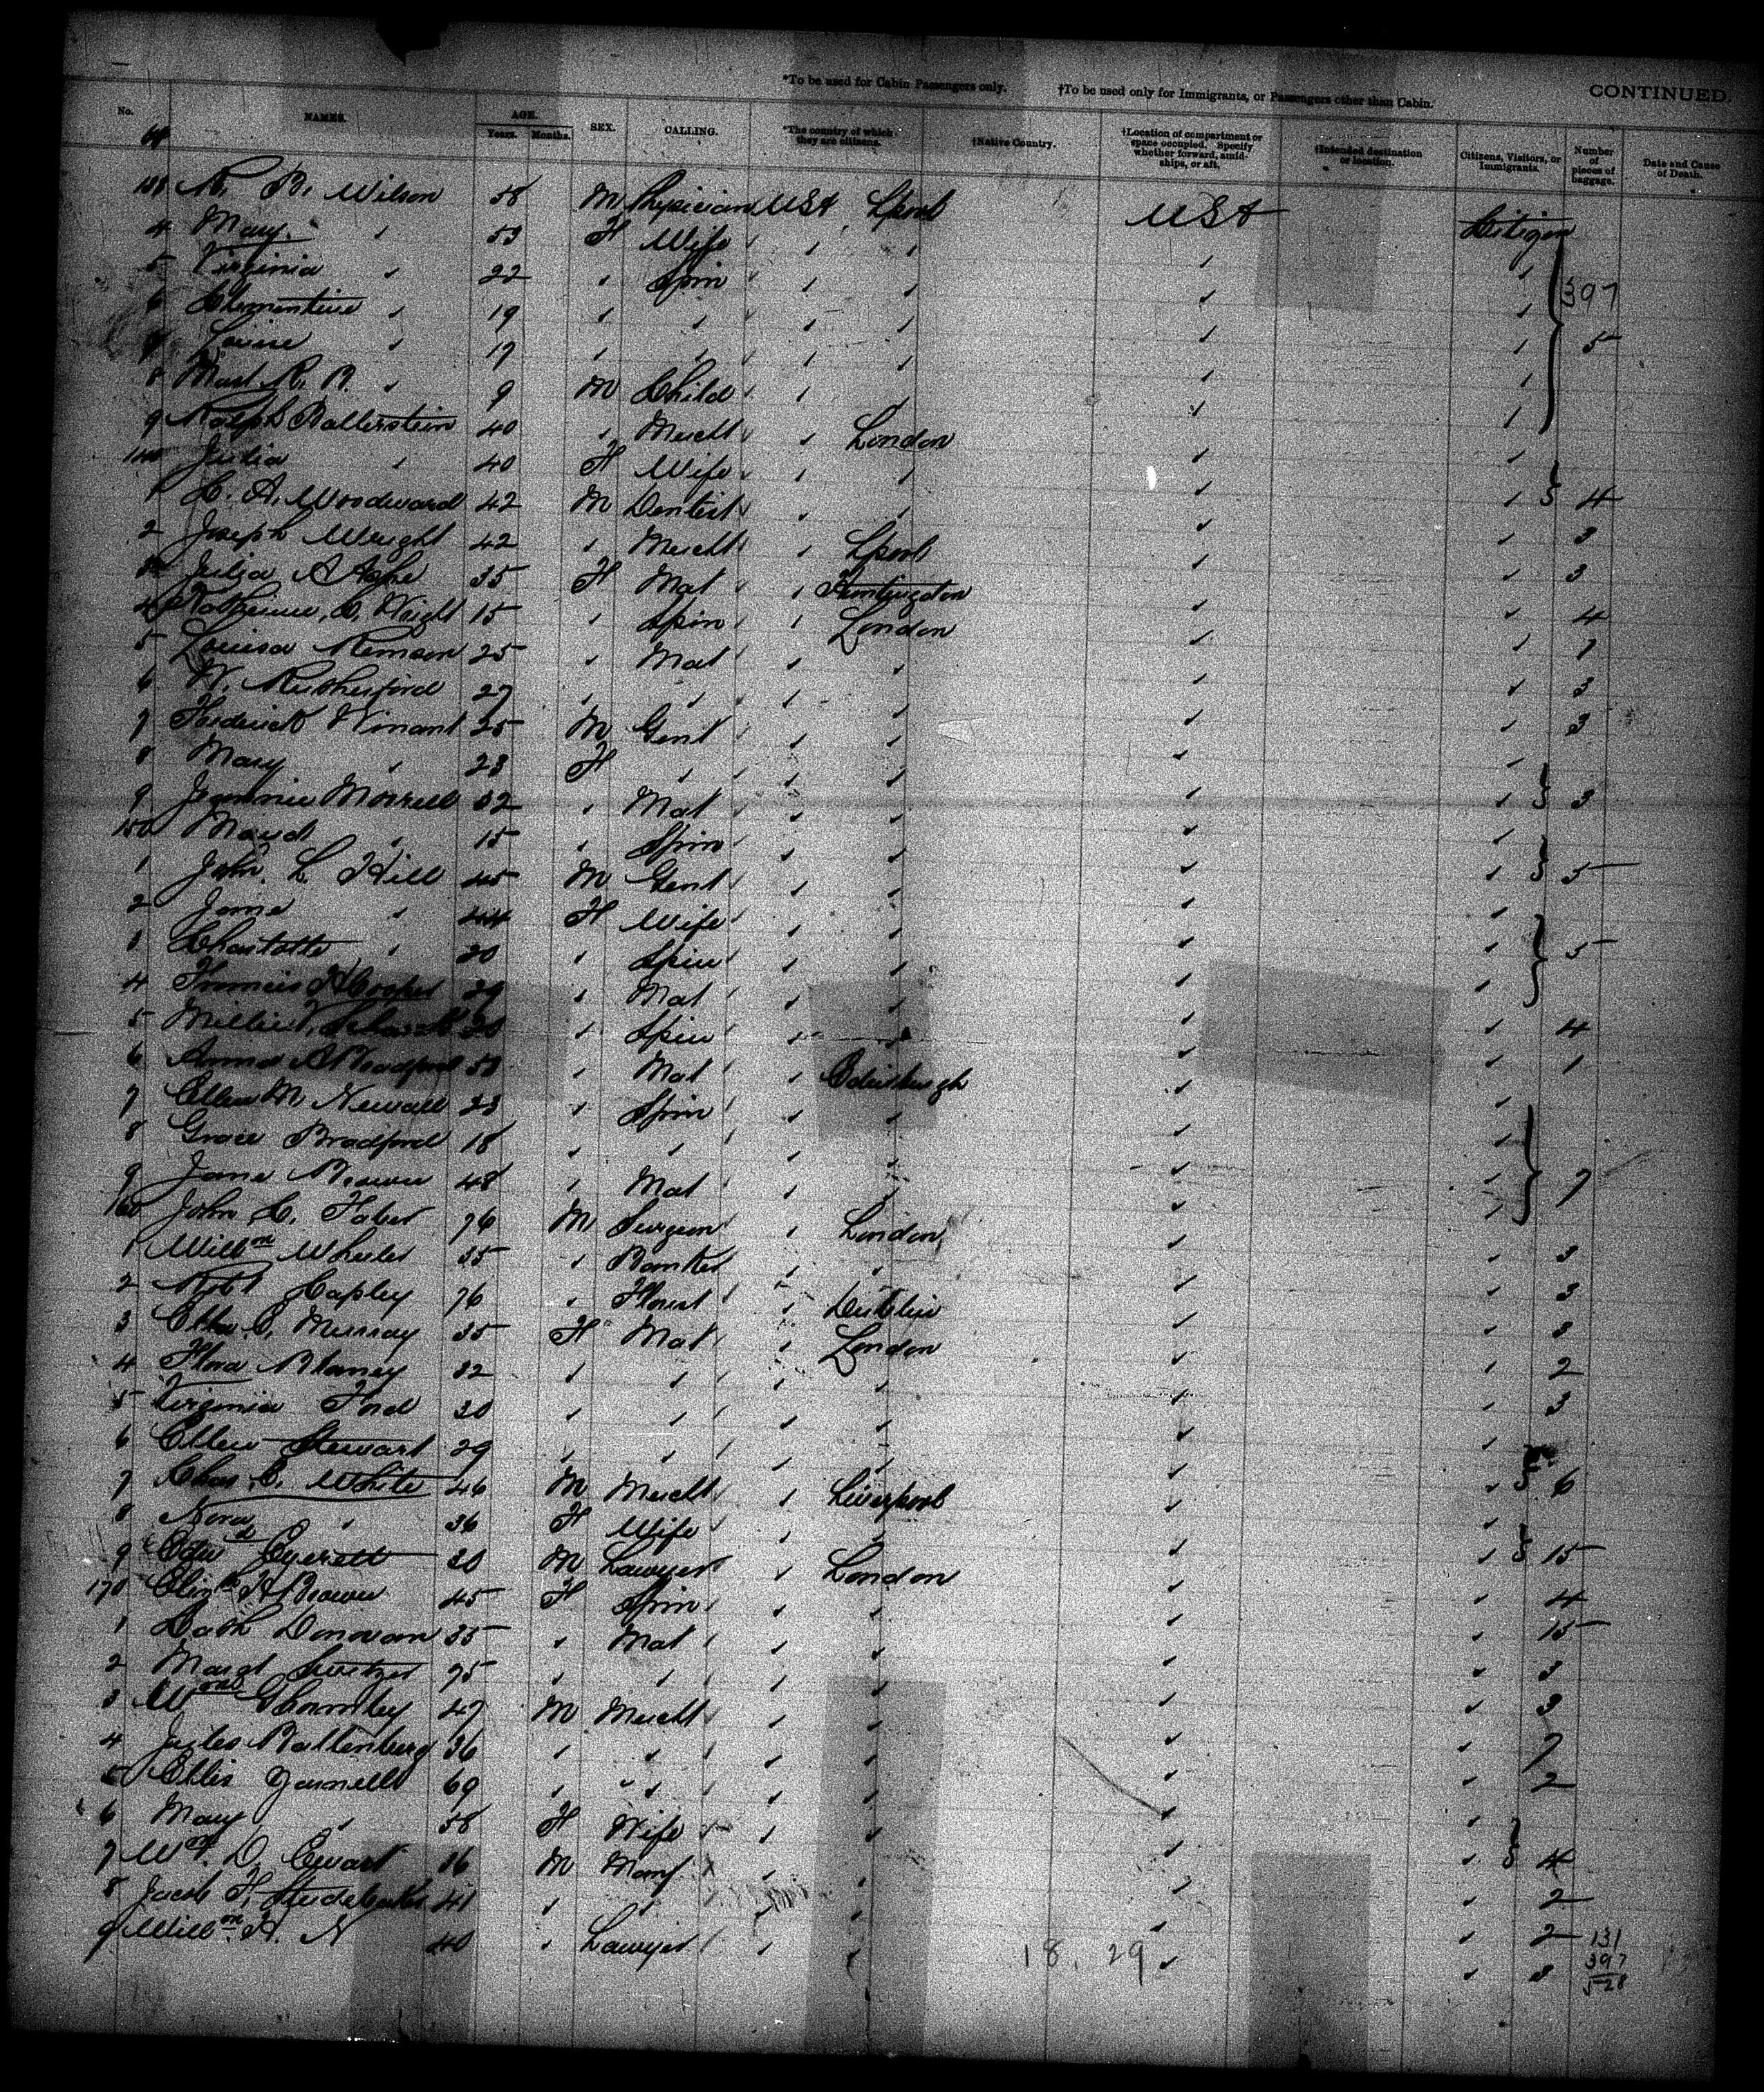 *To be used for Cabin Passengers only. †To be used only for Immigrants, or Passengers other than Cabin. CONTINUED.
No. NAMES. AGE. Years. Months. SEX. CALLING. *The country of which they are citizens. †Native Country. †Location of compartment or space occupied. Specify whether forward, amidships, or aft. †Intended destination or location. Citizens, Visitors, or Immigrants. Number of pieces of baggage. Date and Cause of Death.
R. B. Wilson 58 M Physician USA Lpool USA Citizen
4 Mary 53 F Wife
5 Virginia 22 Spin 397
6 Clementine 19
7 Louise 17 5
8 Mast R. B. 9 M Child
9 Ralph Ballerstein 40 Mercht London
140 Julia 40 F Wife 4
1 C. A. Woodward 42 M Dentist 3
2 Joseph Wright 42 Mercht Lpool 3
3 Julia A Ashe 35 F Mat Huntingdon 4
4 Katherine C. Wright 15 Spin London 1
5 Louisa Remson 25 Mat 3
6 W. Rutherford 27 3
7 Frederick Winant 25 M Gent
8 Mary 23 F 3
9 Jeannie Morrell 32 Mat
150 Maud 15 Spin 5
1 John L. Hill 45 M Gent
2 Jane 44 F Wife 5
3 Charlotte 20 Spin
4 Francis H Cooper 29 Mat 4
5 Millie Spin 1
6 Anna A Bradford 51 Mat Edinburgh
7 Ellen M Newall 23 Spin
8 Grace Bradford 18
9 Jane Brown 48 Mat 7
160 John C. Faber 76 M Surgeon London
1 Willm Wheeler 35 Banker 3
2 Robt Capley 76 Florist Dublin 3
3 Ellen C. Murray 35 F Mat London 3
4 Flora Blaney 32 2
5 Virginia Ford 30 3
6 Ellen Stewart 29
7 Chas. E. White 46 M Mercht Liverpool 6
8 Nora 36 F Wife
9 Edwd Everett 30 M Lawyer London 15
170 Elizth H Brown 45 F Spin 4
1 Cath Donovan 35 Mat 15
2 Margt Switzer 75 3
3 Wm Ghormley 47 M Mercht 3
4 Jules Battenberg 36 7
5 Ellis Yarnell 69 2
6 Mary 58 F Wife
7 Wm. D. Ewart 36 M Manf 4
8 Jacob F. Studebaker 41 2
9 Willm. H. N 40 Lawyer 2 131
18. 29 3 397
528